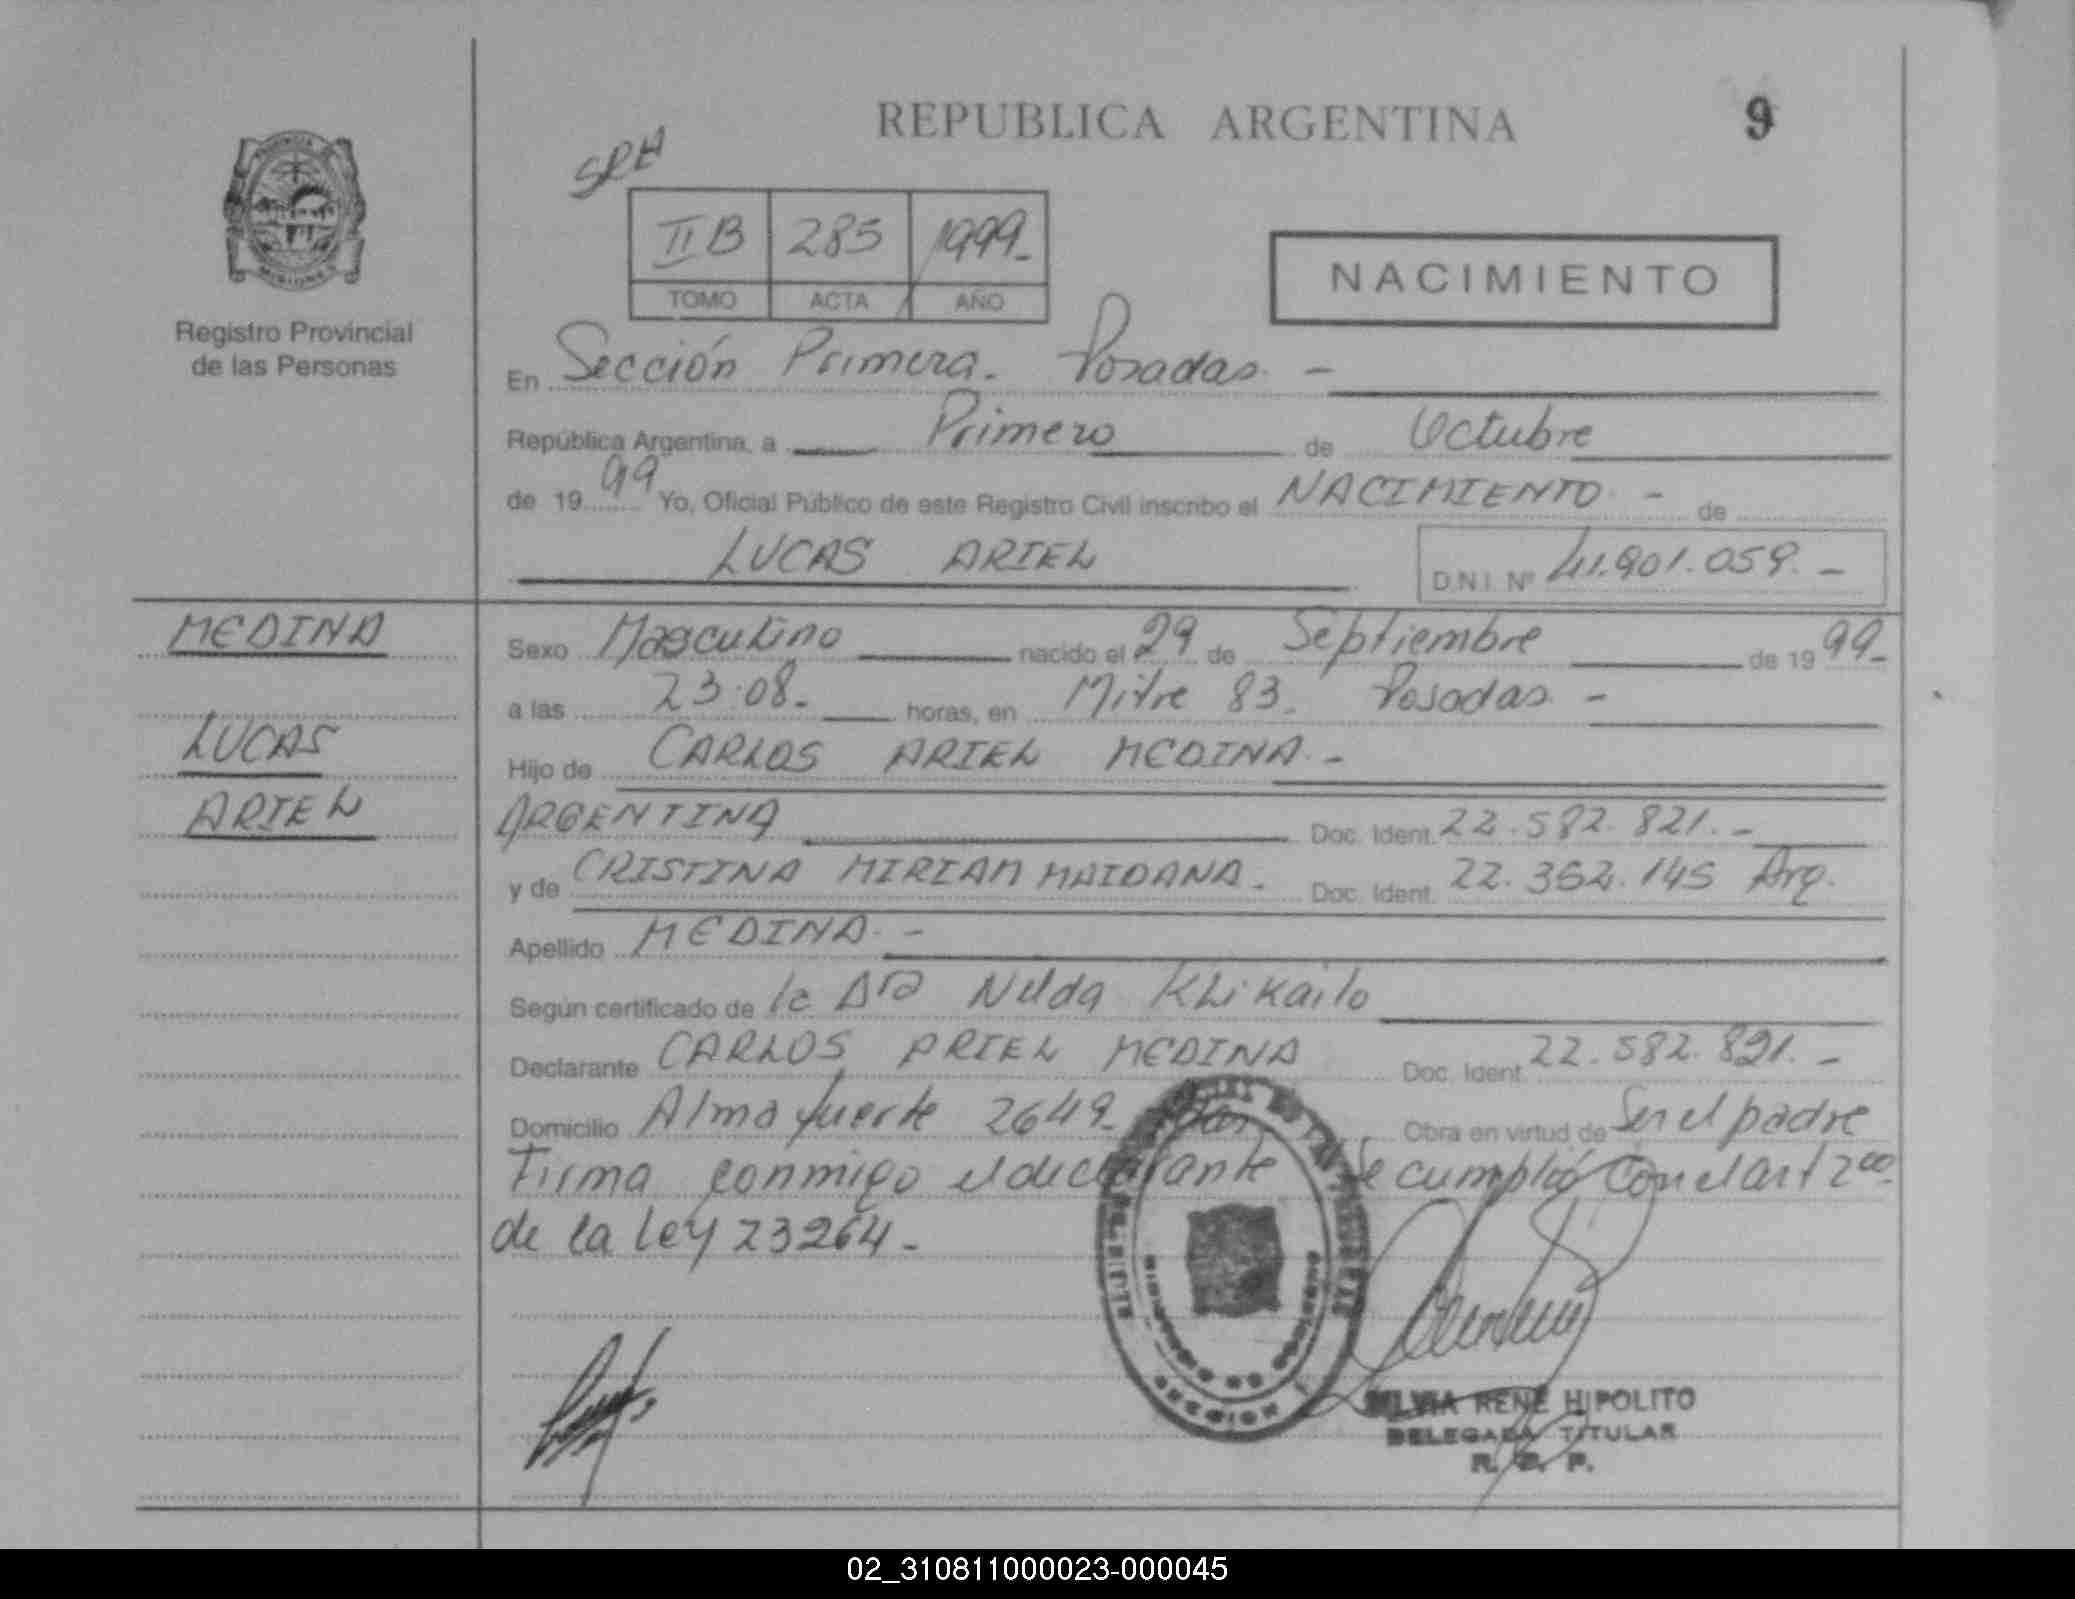 REPUBLICA ARGENTINA
9
SRA
II B 285 1999-
TOMO ACTA AÑO
NACIMIENTO
Registro Provincial
de las Personas
En Sección Primera. Posadas. -
República Argentina, a Primero de Octubre
de 1999 Yo, Oficial Público de este Registro Civil inscribo el NACIMIENTO - de
LUCAS ARIEL D.N.I. Nº 41.901.059. -
MEDINA
LUCAS
ARIEL
Sexo Masculino nacido el 29 de Septiembre de 1999-
a las 23.08. horas, en Mitre 83. Posadas. -
Hijo de CARLOS ARIEL MEDINA. -
ARGENTINA Doc. Ident. 22.582.821. -
y de CRISTINA MIRIAM MAIDANA. Doc. Ident. 22.362.145 Arg.
Apellido MEDINA. -
Según certificado de la Dra Nilda Klikailo
Declarante CARLOS ARIEL MEDINA Doc. Ident. 22.582.821. -
Domicilio Almafuerte 2649- Obra en virtud de Ser el padre
Firma conmigo el declarante Se cumplió con el art 2do.
de la Ley 23264-
SILVIA RENE HIPOLITO
DELEGADA TITULAR
R. P. P.
02_310811000023-000045